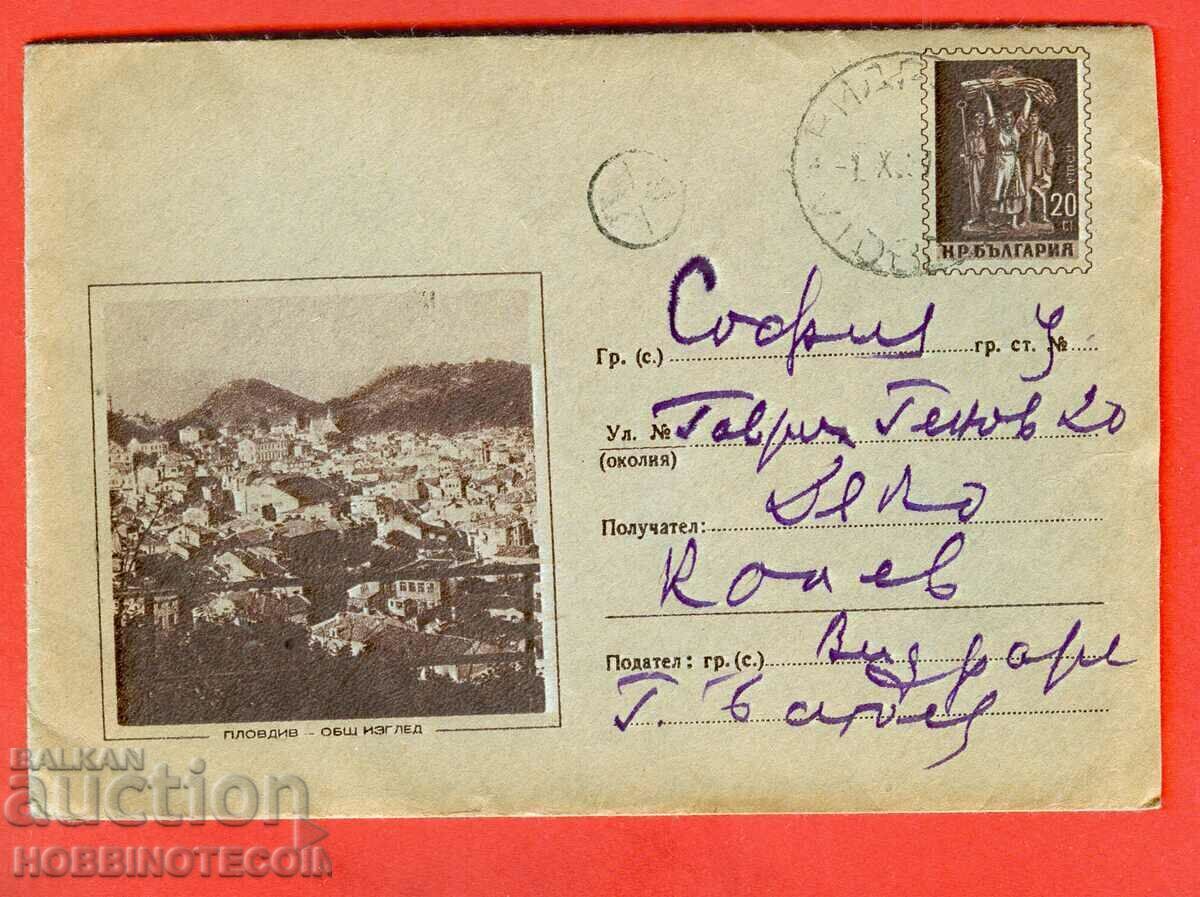 ПОЩА
20
СТ
НР. БЪЛГАРИЯ
-1. X.
Гр. (с.) София гр. ст. №
Ул. № Гаврил Генов 20
(околия)
Получател:
Колев
Подател: гр. (с.)
Г.
ПЛОВДИВ - ОБЩ ИЗГЛЕД
BALKAN
auction
HOBBINOTECOIN